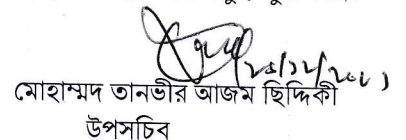 মোহাম্মদ তানভীর আজম ছিদ্দিকী
উপসচিব